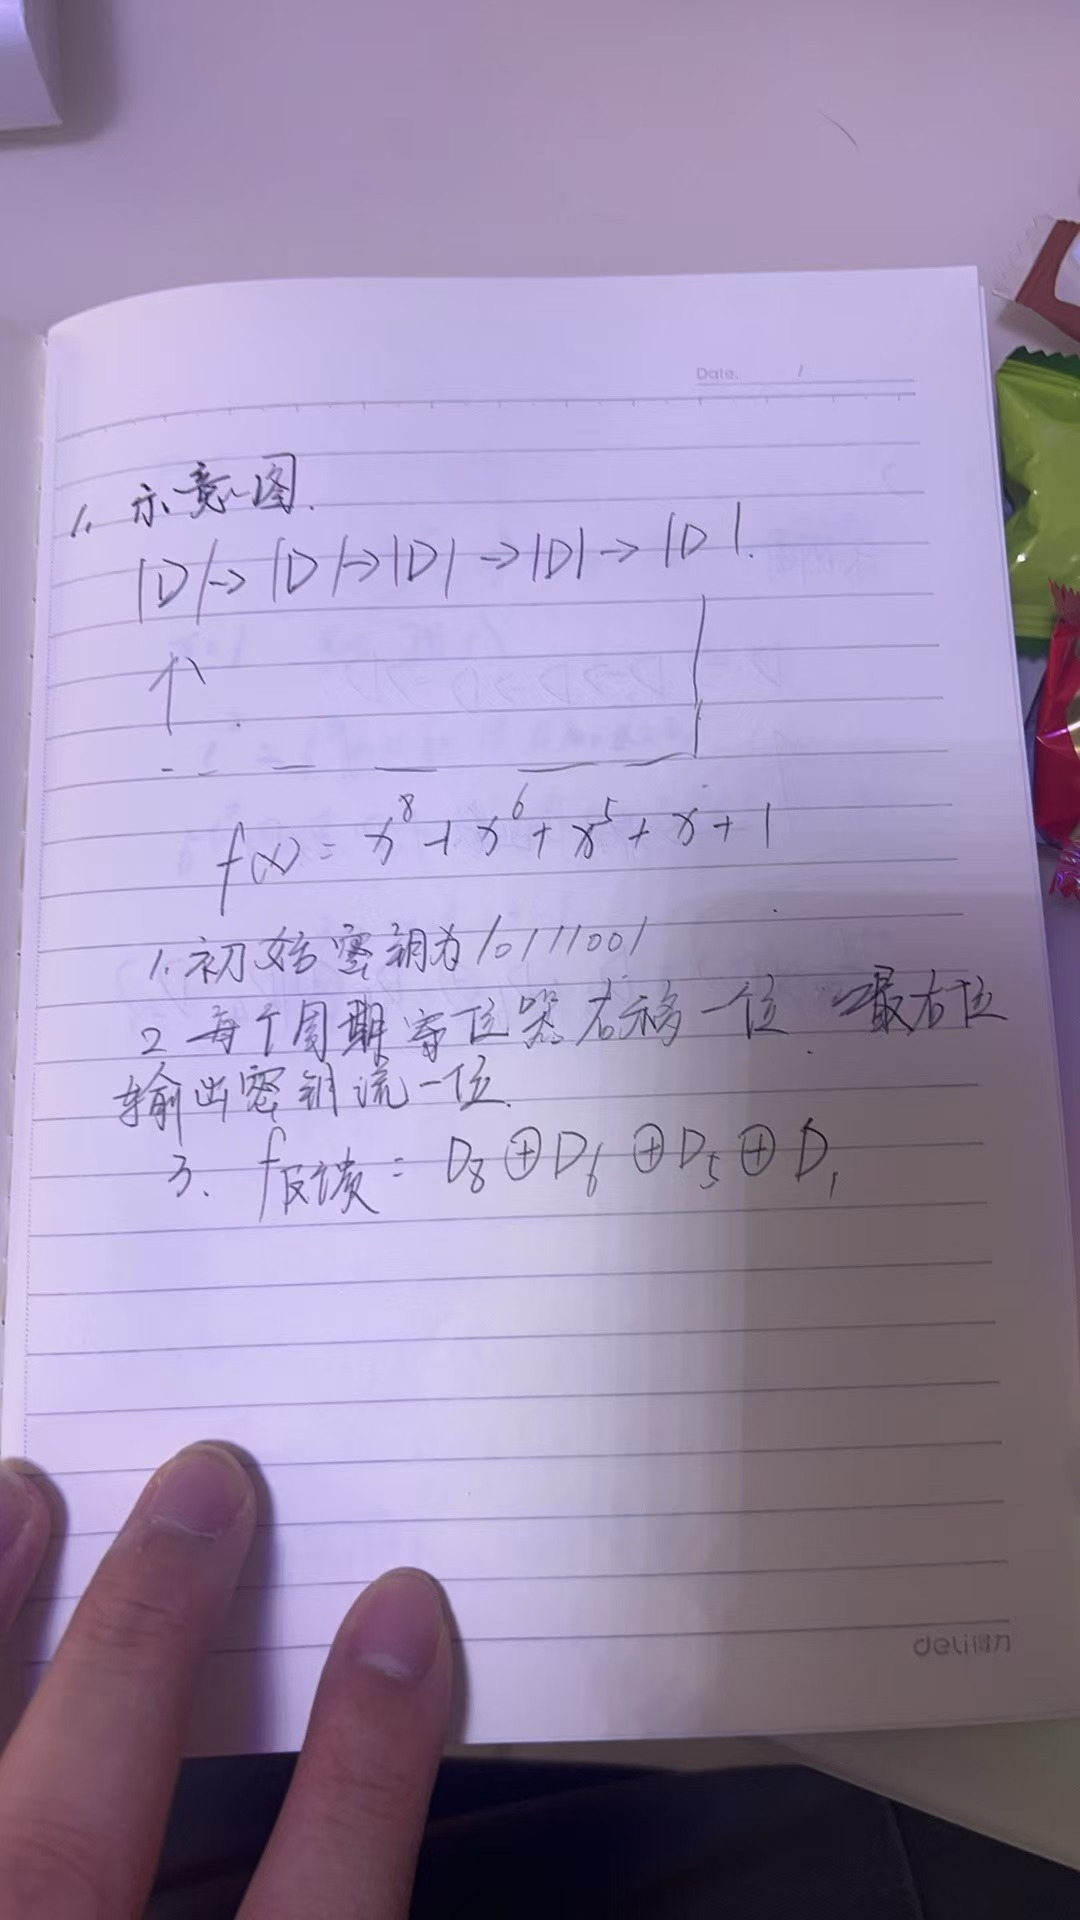 Date. /
1. 示意图.
|D|→|D|→|D|→|D|→|D|.
f(x)= x⁸+x⁶+x⁵+x+1
1. 初始密钥为10111001
2 每个周期寄位器右移一位 最右位
输出密钥流一位.
3. f反馈= D₈⊕D₆⊕D₅⊕D₁
deli得力